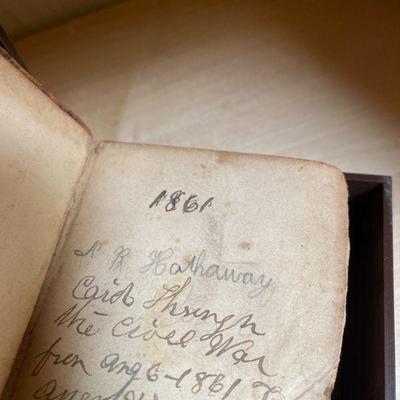 1861
A R Hathaway
Caid Through
the Civel War
frem Aug 6-1861 To